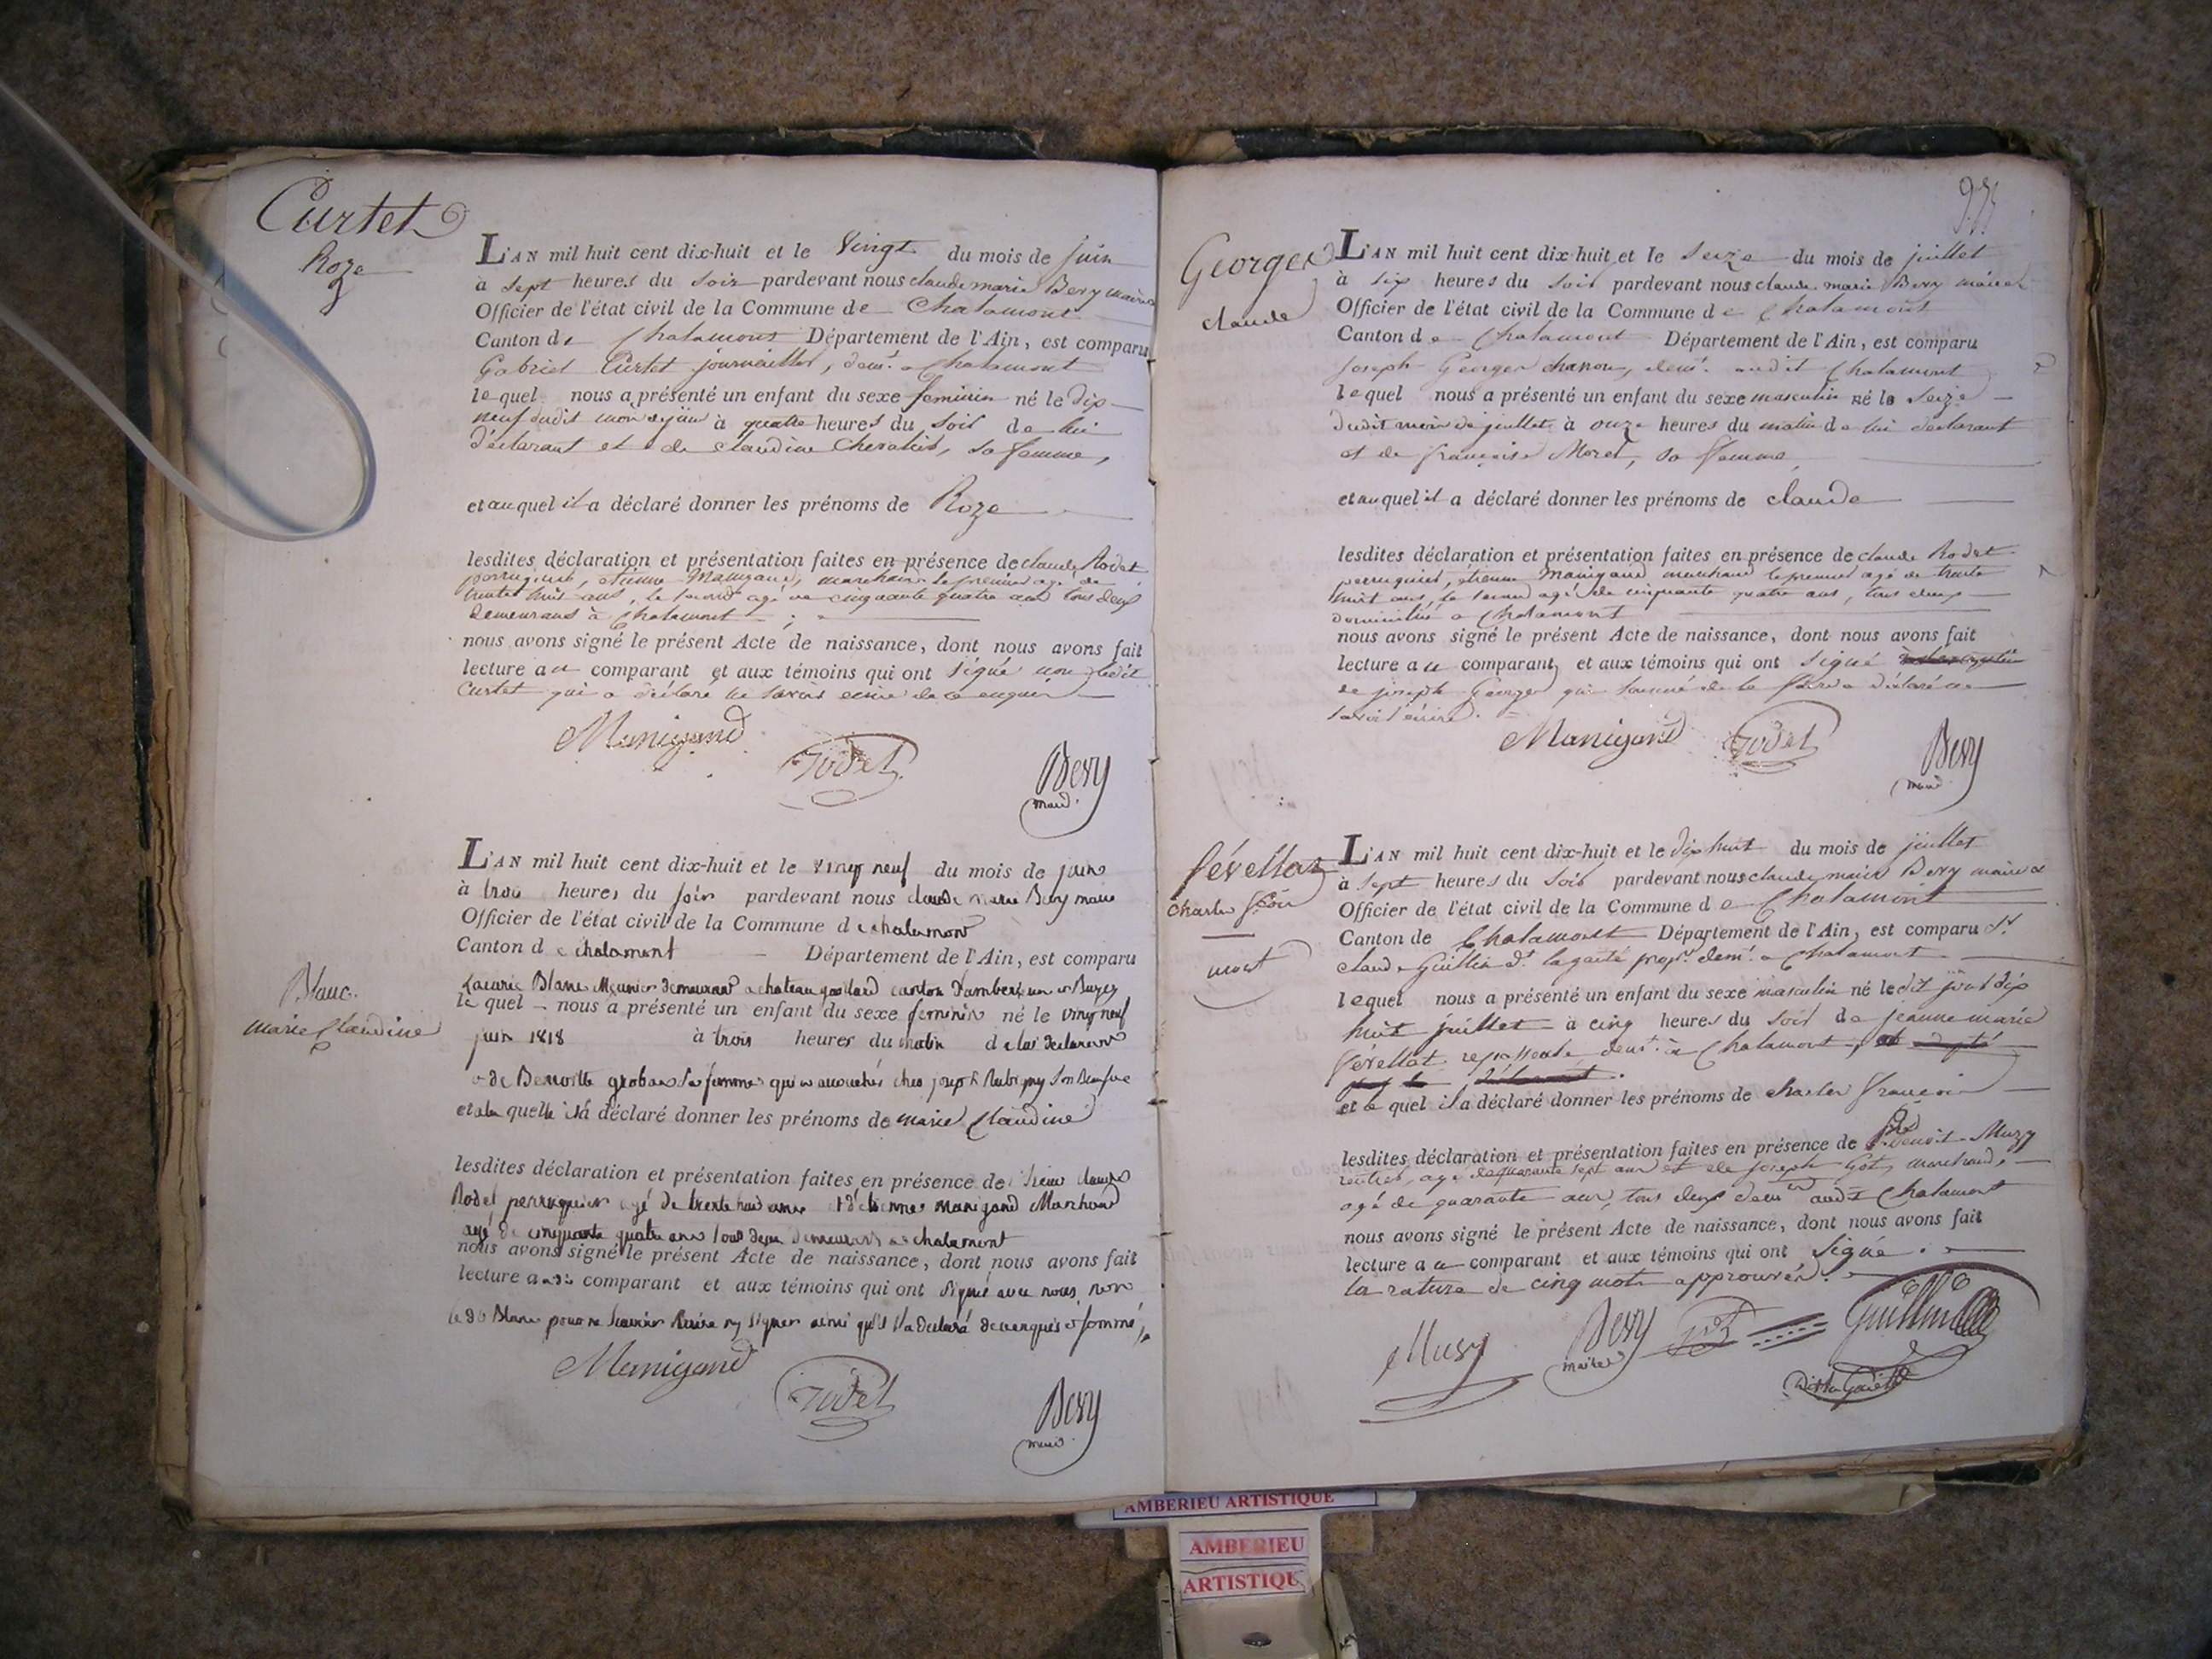 Curtet
Roze
L'AN mil huit cent dix-huit et le Vingt du mois de juin
à sept heures du soir pardevant nous claude marie Bery maire
Officier de l'état civil de la Commune de Chalamont
Canton de Chalamont Département de l'Ain, est comparu
Gabriel Curtet journaillier, dem.t a Chalamont
lequel nous a présenté un enfant du sexe feminin né le dix
neuf dudit mois de juin à quatre heures du soir de lui
déclarant et de claudine Chevalier, sa femme,
et auquel il a déclaré donner les prénoms de Roze
lesdites déclaration et présentation faites en présence de claude Rodet
perruquier, etienne Manigand, marchand le premier agé de
trente huit ans, le second agé de cinquante quatre ans tous deux
demeurans à Chalamont
nous avons signé le présent Acte de naissance, dont nous avons fait
lecture au comparant et aux témoins qui ont signé non ledit
Curtet qui a déclaré ne savoir ecrire de ce enquis
Manigand
Rodet
Bery
maire
Blanc
marie Claudine
L'AN mil huit cent dix-huit et le vingt neuf du mois de juin
à trois heures du soir pardevant nous claude marie Bery maire
Officier de l'état civil de la Commune de chalamont
Canton de chalamont Département de l'Ain, est comparu
Blanc Meunier demeurant a chateau gaillard canton d'amberieux en Bugey
le quel nous a présenté un enfant du sexe feminin né le vingt neuf
juin 1818 à trois heures du matin de lui declarant
et de Benoitte sa femme qui a accouchée chez joseph
et a la quelle il a déclaré donner les prénoms de marie Claudine
lesdites déclaration et présentation faites en présence de sieur claude
Rodet perruquier agé de trente huit ans et d'etienne manigand Marchand
agé de cinquante quatre ans tous deux demeurants a chalamont
nous avons signé le présent Acte de naissance, dont nous avons fait
lecture audit comparant et aux témoins qui ont signé avec nous, non
le dit Blanc pour ne savoir Ecrire ny signer ainsi qu'il l'a declaré de ce enquis et sommé
Manigand
Rodet
Bery
maire
Georges
claude
L'AN mil huit cent dix-huit et le seize du mois de juillet
à six heures du soir pardevant nous claude marie Bery maire
Officier de l'état civil de la Commune de Chalamont
Canton de Chalamont Département de l'Ain, est comparu
joseph Georges dem.t audit Chalamont
lequel nous a présenté un enfant du sexe masculin né le seize
dudit mois de juillet à onze heures du matin de lui déclarant
et de françoise Morel, sa femme
et auquel il a déclaré donner les prénoms de claude
lesdites déclaration et présentation faites en présence de claude Rodet
perruquier, étienne Manigand marchand le premier agé de trente
huit ans, le second agé de cinquante quatre ans, tous deux
domiciliés a Chalamont
nous avons signé le présent Acte de naissance, dont nous avons fait
lecture au comparant, et aux témoins qui ont signé
de joseph Georges qui sommé de le faire a déclaré ne
savoir écrire.
Manigand
Rodet
Bery
maire
févellat
Charles f.çois
mort
L'AN mil huit cent dix-huit et le dix huit du mois de juillet
à sept heures du soir pardevant nous claude marie Bery maire
Officier de l'état civil de la Commune de Chalamont
Canton de Chalamont Département de l'Ain, est comparu S.r
claude Guillin d.t lagaité prop.re dem.t a Chalamont
lequel nous a présenté un enfant du sexe masculin né ledit jour dix
huit juillet à cinq heures du soir de jeanne marie
févellat dem.t à Chalamont,
et a quel il a déclaré donner les prénoms de charles françois
lesdites déclaration et présentation faites en présence de benoit Muzy
rentier, agé de quarante sept ans et de joseph Got, marchand,
agé de quarante ans, tous deux dem.rs audit Chalamont
nous avons signé le présent Acte de naissance, dont nous avons fait
lecture au comparant et aux témoins qui ont signé.
la rature de cinq mots approuvée.
Musy
Bery
maire
Got
Guillin
dit la Gaieté
AMBERIEU ARTISTIQUE
AMBERIEU
ARTISTIQU